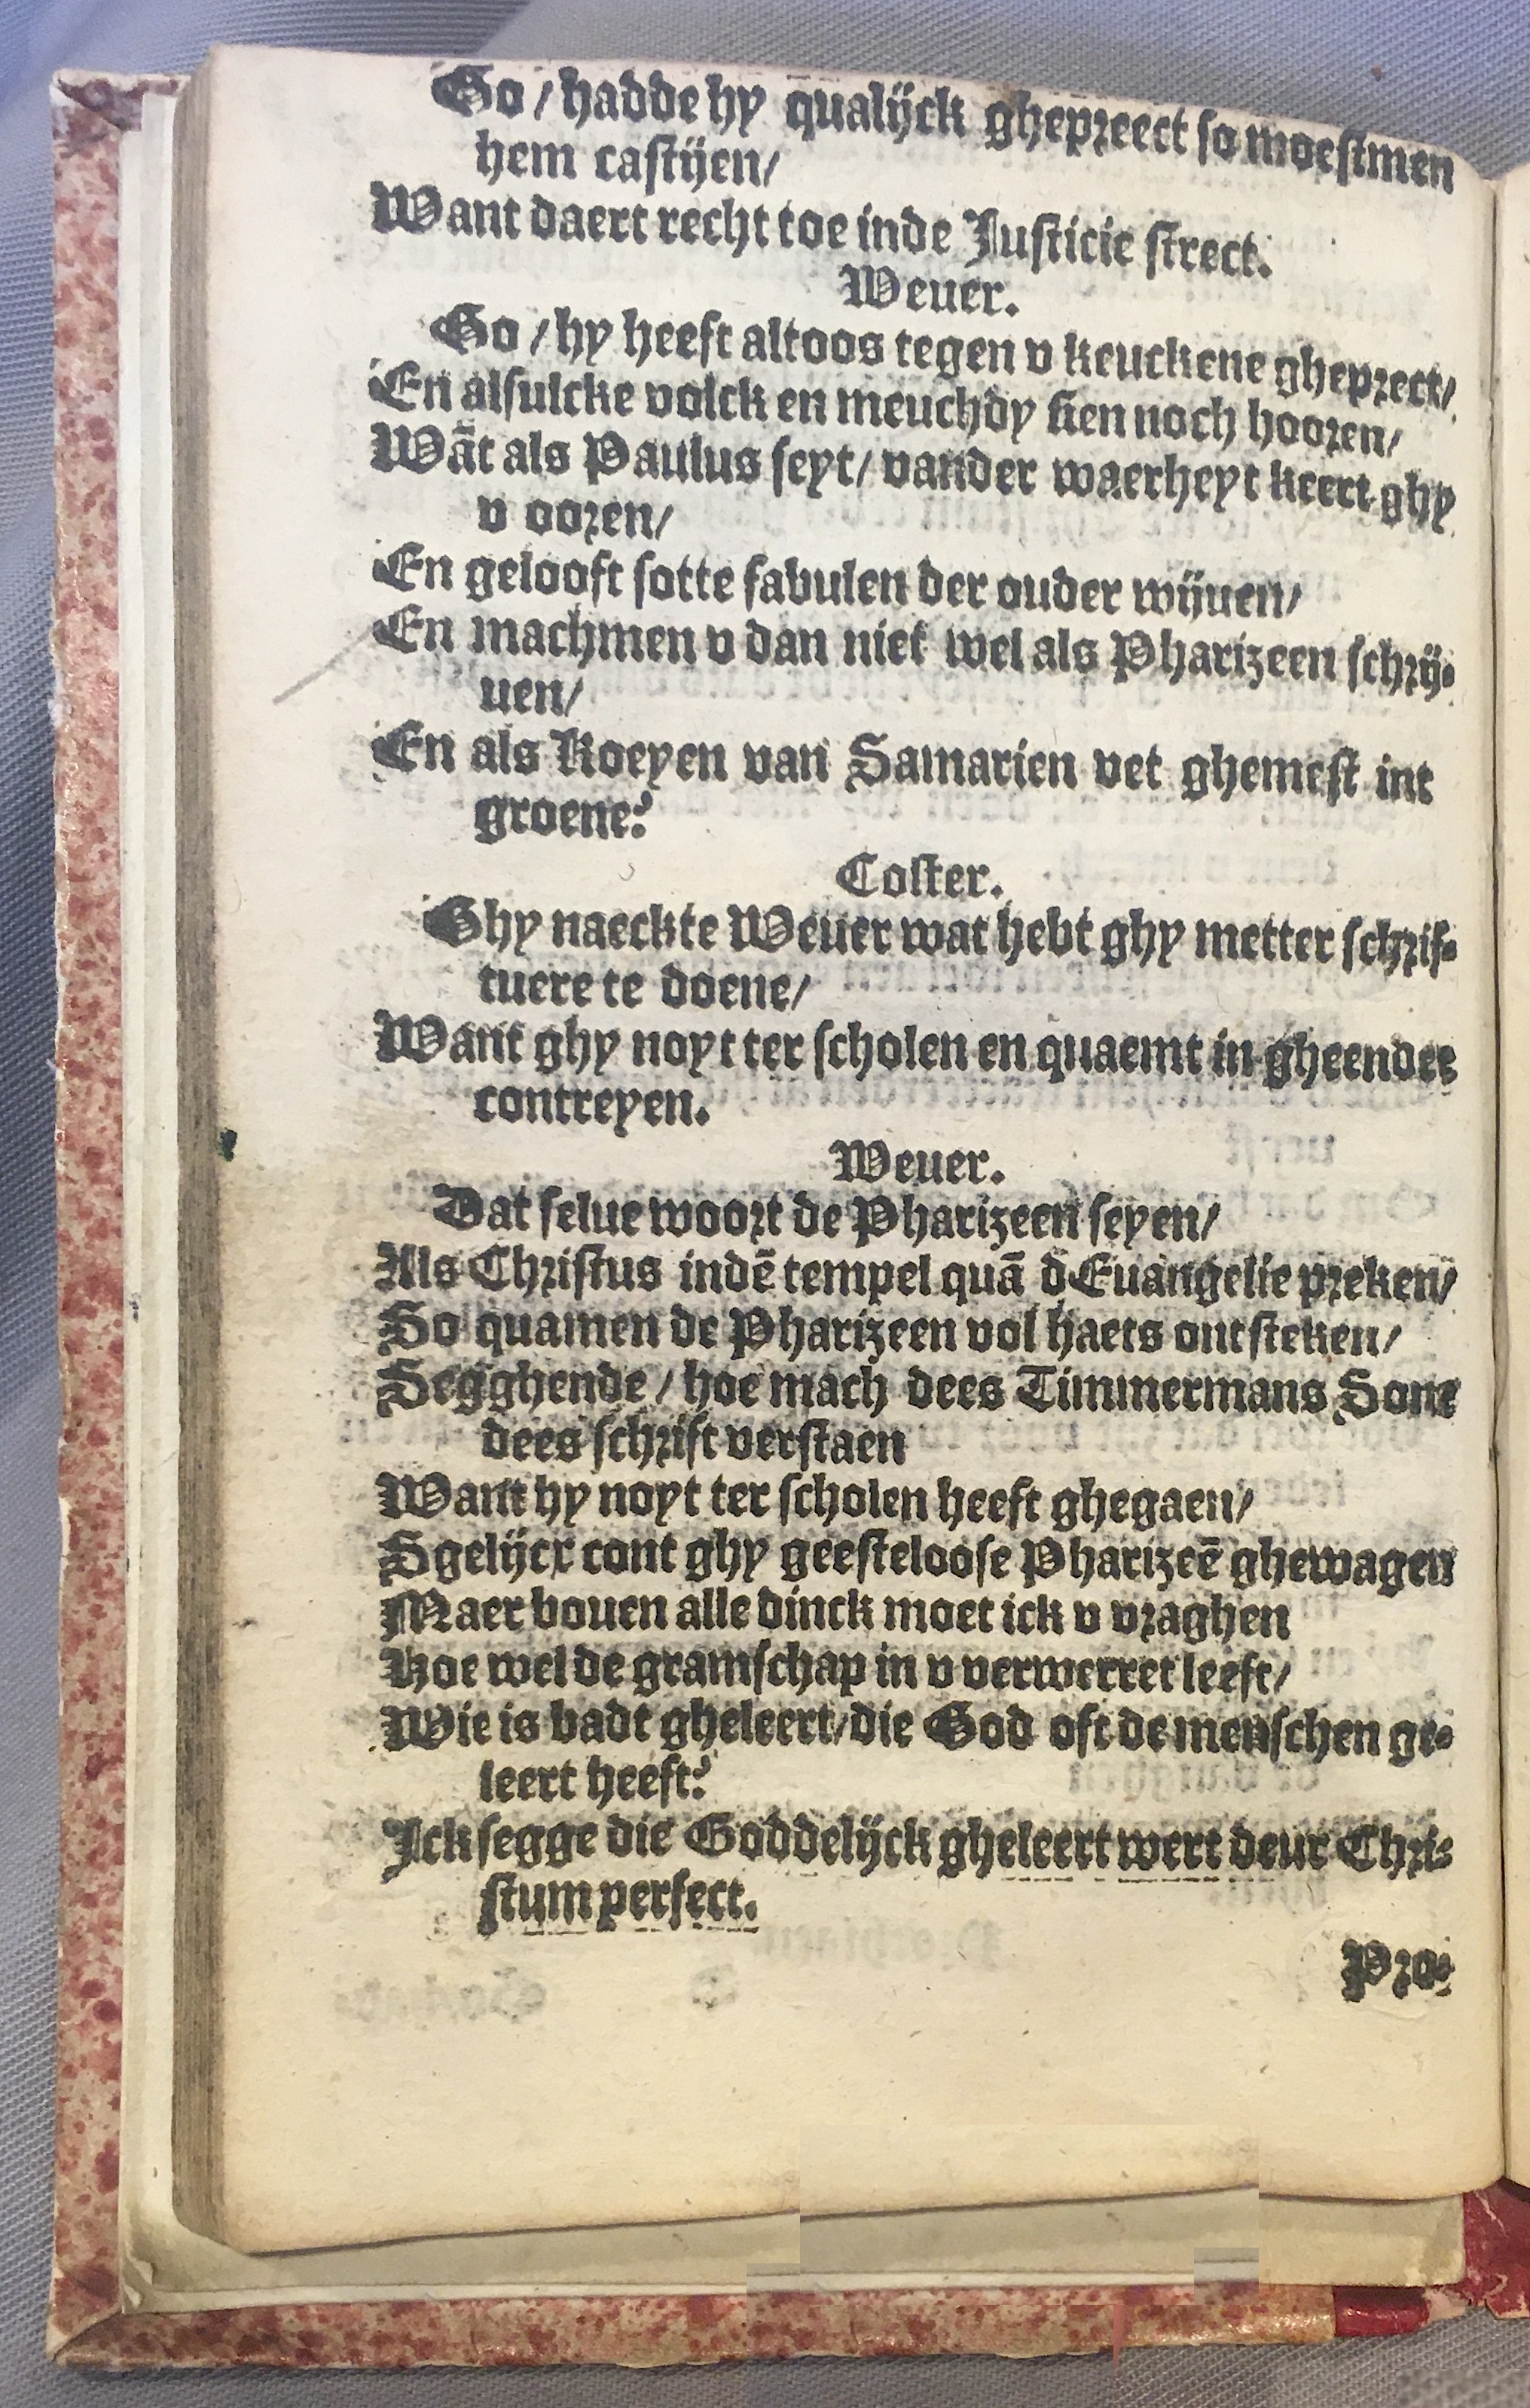 Go / hadde hy qualijck ghepreect so moestmen
hem castijen/
Want daert recht toe inde Justicie strect.
Weuer.
Go / hy heeft altoos tegen v keuckene gheprect/
En alsulcke volck en meuchdy sien noch hooren/
Wāt als Paulus seyt/ vander waerheyt keert ghy
v ooren/
En gelooft sotte fabulen der ouder wijuen/
En machmen v dan niet wel als Pharizeen schrij-
uen/
En als Koeyen van Samarien vet ghemest int
groene?
Coster.
Ghy naeckte Weuer wat hebt ghy metter schrif-
tuere te doene/
Want ghy noyt ter scholen en quaemt in gheender
contreyen.
Weuer.
Dat selue woort de Pharizeen seyen/
Als Christus indē tempel quā d Euangelie preken/
So quamen de Pharizeen vol haets ontsteken/
Segghende / hoe mach dees Timmermans Sone
dees schrift verstaen
Want hy noyt ter scholen heeft ghegaen/
Sgelijcx cont ghy geesteloose Pharizeē ghewagen
Maer bouen alle dinck moet ick v vraghen
Hoe wel de gramschap in v verwerret leeft/
Wie is badt gheleert/die God oft de menschen ge-
leert heeft?
Ick segge die Goddelijck gheleert wert deur Chri-
stum perfect.
Pro-